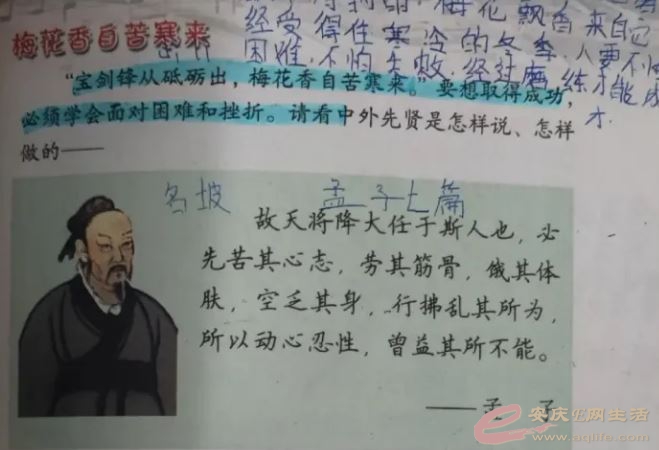 经受得住寒冷的冬季,人要不怕
困难,不怕失败,经过磨练才能成
才.
梅花香自苦寒来
“宝剑锋从砥砺出,梅花香自苦寒来。”要想取得成功,
必须学会面对困难和挫折。请看中外先贤是怎样说、怎样
做的——
孟子七篇
故天将降大任于斯人也,必
先苦其心志,劳其筋骨,饿其体
肤,空乏其身,行拂乱其所为,
所以动心忍性,曾益其所不能。
——孟 子
安庆E网生活
www.aqlife.com